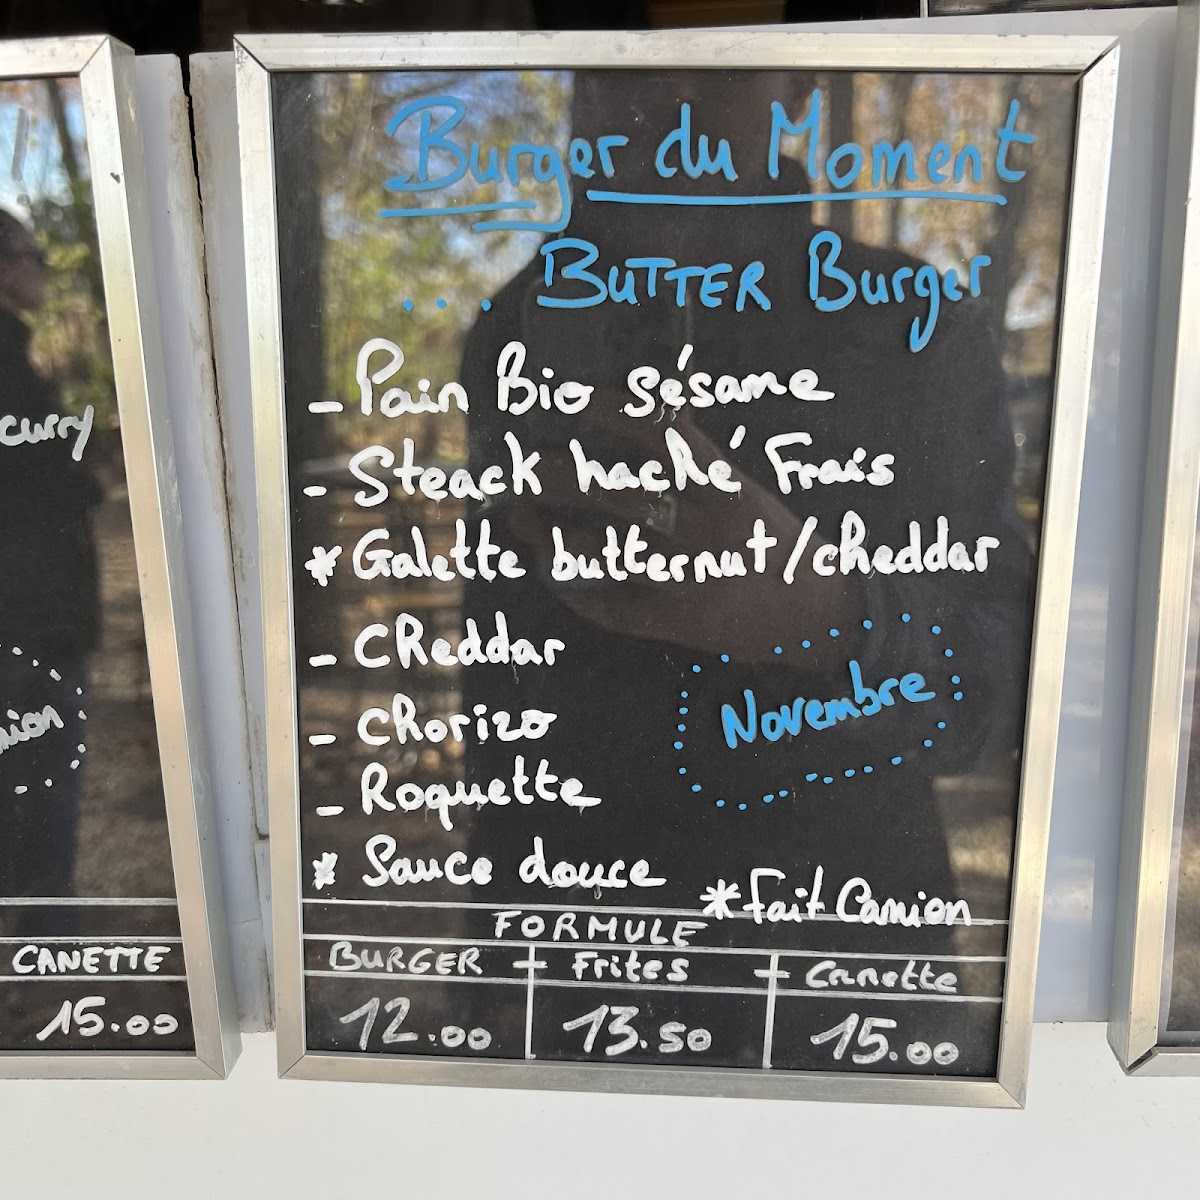 Burger du Moment
... BUTTER Burger
- Pain Bio Sésame
- Steack haché Frais
* Galette butternut/cheddar
- Cheddar
- Chorizo
- Roquette
* Sauce douce
Novembre
* Fait Camion
FORMULE
BURGER + Frites + Canette
12.00 13.50 15.00
curry
CANETTE
15.00